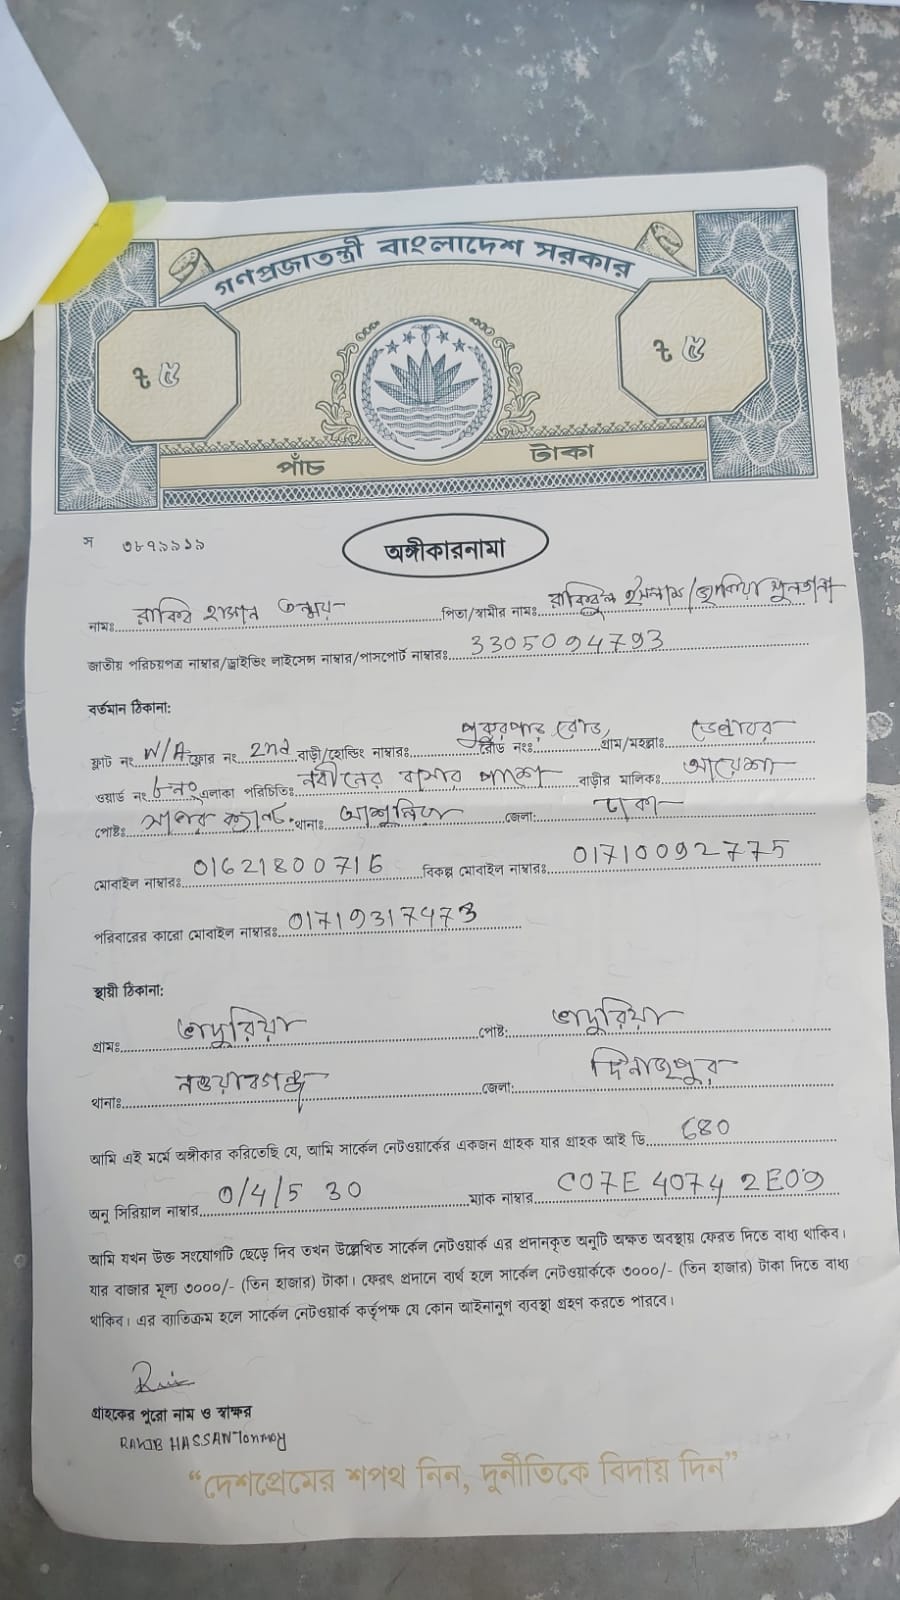 গণপ্রজাতন্ত্রী বাংলাদেশ সরকার
৳ ৫ ৳ ৫
পাঁচ টাকা
স ৩৮৭৯৯১৯
অঙ্গীকারনামা
নামঃ রাকিব হাসান তন্ময় পিতা/স্বামীর নামঃ রাকিবুল ইসলাম/জাকিয়া সুলতানা
জাতীয় পরিচয়পত্র নাম্বার/ড্রাইভিং লাইসেন্স নাম্বার/পাসপোর্ট নাম্বারঃ 3305094793
বর্তমান ঠিকানা:
ফ্লাট নং N/A ফ্লোর নং 2nd বাড়ী/হোল্ডিং নাম্বারঃ পুকুরপাড় রোড, রোড নংঃ গ্রাম/মহল্লাঃ ডেন্ডাবর
ওয়ার্ড নং ৮ নং এলাকা পরিচিতিঃ নবীনের বাসার পাশে বাড়ীর মালিকঃ আয়েশা
পোষ্টঃ সাভার ক্যান্ট. থানাঃ আশুলিয়া জেলা: ঢাকা
মোবাইল নাম্বারঃ 01621800716 বিকল্প মোবাইল নাম্বারঃ 01710092775
পরিবারের কারো মোবাইল নাম্বারঃ 01719317473
স্থায়ী ঠিকানা:
গ্রামঃ ভাদুরিয়া পোষ্ট: ভাদুরিয়া
থানাঃ নওয়াবগঞ্জ জেলা: দিনাজপুর
আমি এই মর্মে অঙ্গীকার করিতেছি যে, আমি সার্কেল নেটওয়ার্কের একজন গ্রাহক যার গ্রাহক আই ডি 680
অনু সিরিয়াল নাম্বার 0/4/5 30 ম্যাক নাম্বার C07E 4074 2E09
আমি যখন উক্ত সংযোগটি ছেড়ে দিব তখন উল্লেখিত সার্কেল নেটওয়ার্ক এর প্রদানকৃত অনুটি অক্ষত অবস্থায় ফেরত দিতে বাধ্য থাকিব।
যার বাজার মূল্য ৩০০০/- (তিন হাজার) টাকা। ফেরৎ প্রদানে ব্যর্থ হলে সার্কেল নেটওয়ার্ককে ৩০০০/- (তিন হাজার) টাকা দিতে বাধ্য
থাকিব। এর ব্যতিক্রম হলে সার্কেল নেটওয়ার্ক কর্তৃপক্ষ যে কোন আইনানুগ ব্যবস্থা গ্রহণ করতে পারবে।
গ্রাহকের পুরো নাম ও স্বাক্ষর
RAKIB HASSAN Tonmoy
“দেশপ্রেমের শপথ নিন, দুর্নীতিকে বিদায় দিন”